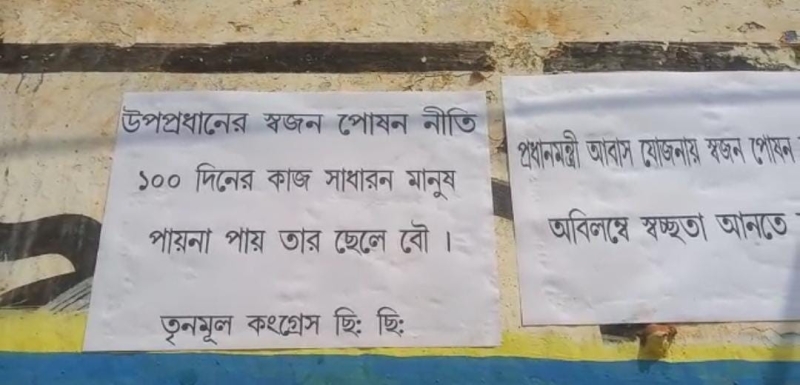 উপপ্রধানের স্বজন পোষন নীতি
১০০ দিনের কাজ সাধারন মানুষ
পায়না পায় তার ছেলে বৌ ।
তৃনমূল কংগ্রেস ছি: ছি:
প্রধানমন্ত্রী আবাস যোজনায় স্বজন পোষন
অবিলম্বে স্বচ্ছতা আনতে